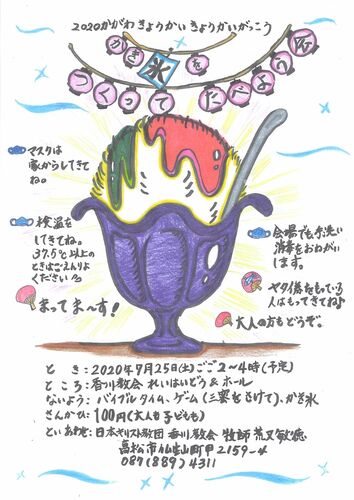 2020かがわきょうかいきょうかいがっこう
かき氷を
つくってたべよう会
マスクは
家からしてきて
ね。
検温を
してきてね。
37.5℃以上の
ときはごえんりょ
ください
会場でも手洗い
消毒をおねがい
します。
ヤクイ為をもっている
人はもってきてね♪
大人の方もどうぞ。
まってま〜す!
とき:2020年7月25日(土)ごご2〜4時(予定)
ところ:香川教会 れいはいどう&ホール
ないよう:バイブルタイム、ゲーム(三密をさけて)、かき氷
さんかひ:100円(大人も子どもも)
といあわせ:日本キリスト教団 香川教会 牧師 荒又敏徳
高松市仏生山町甲2159-4
087(889)4311